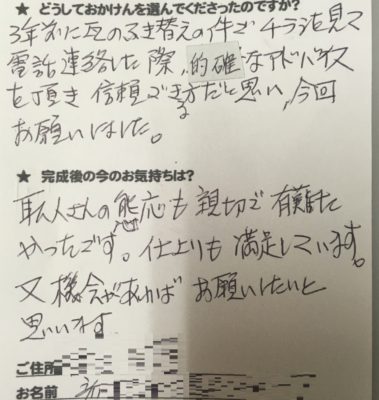 ★ どうしておかけんを選んでくださったのですか?
3年前に瓦のふき替えの件でチラシを見て
電話連絡した際、的確なアドバイス
を頂き信頼できる方だと思い、今回
お願いしました。
★ 完成後の今のお気持ちは?
職人さんの態応も親切で有難た
かったです。仕上りも満足しています。
又機会があれば お願いしたいと
思います
ご住所
お名前